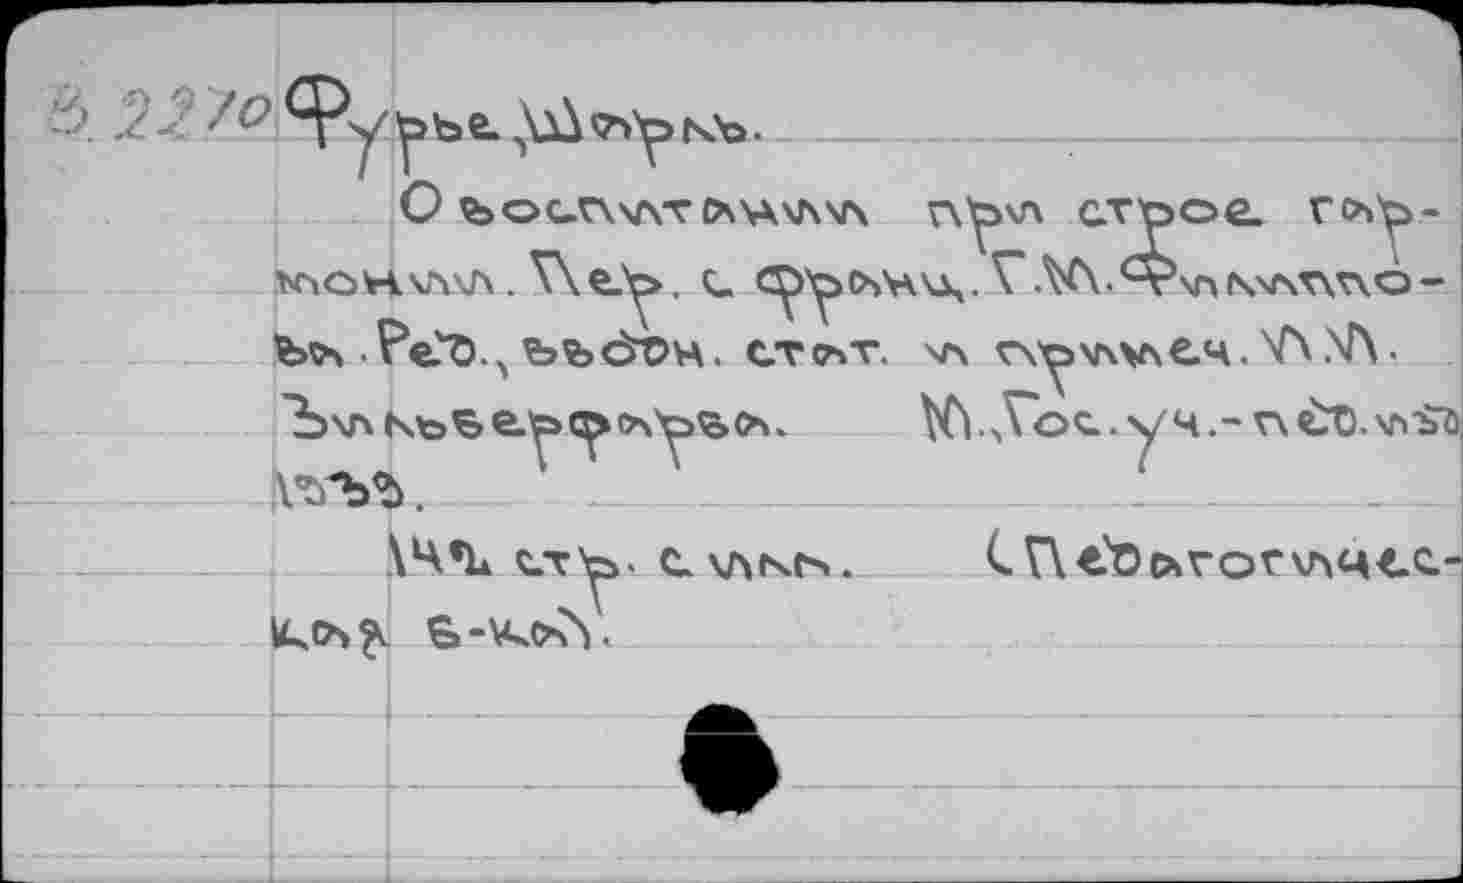 В 2270 Фурье, Шарль.
О воспитании при строе гар-
монии. Пер. с франц. Г.И. Филиппо-
ва. Ред., вводн. стат. и примеч. И.И.
Зильберфарба. М., Гос. уч.-пед. изд
1939.
194 стр. с илл. (Педагогичес-
кая в-ка).